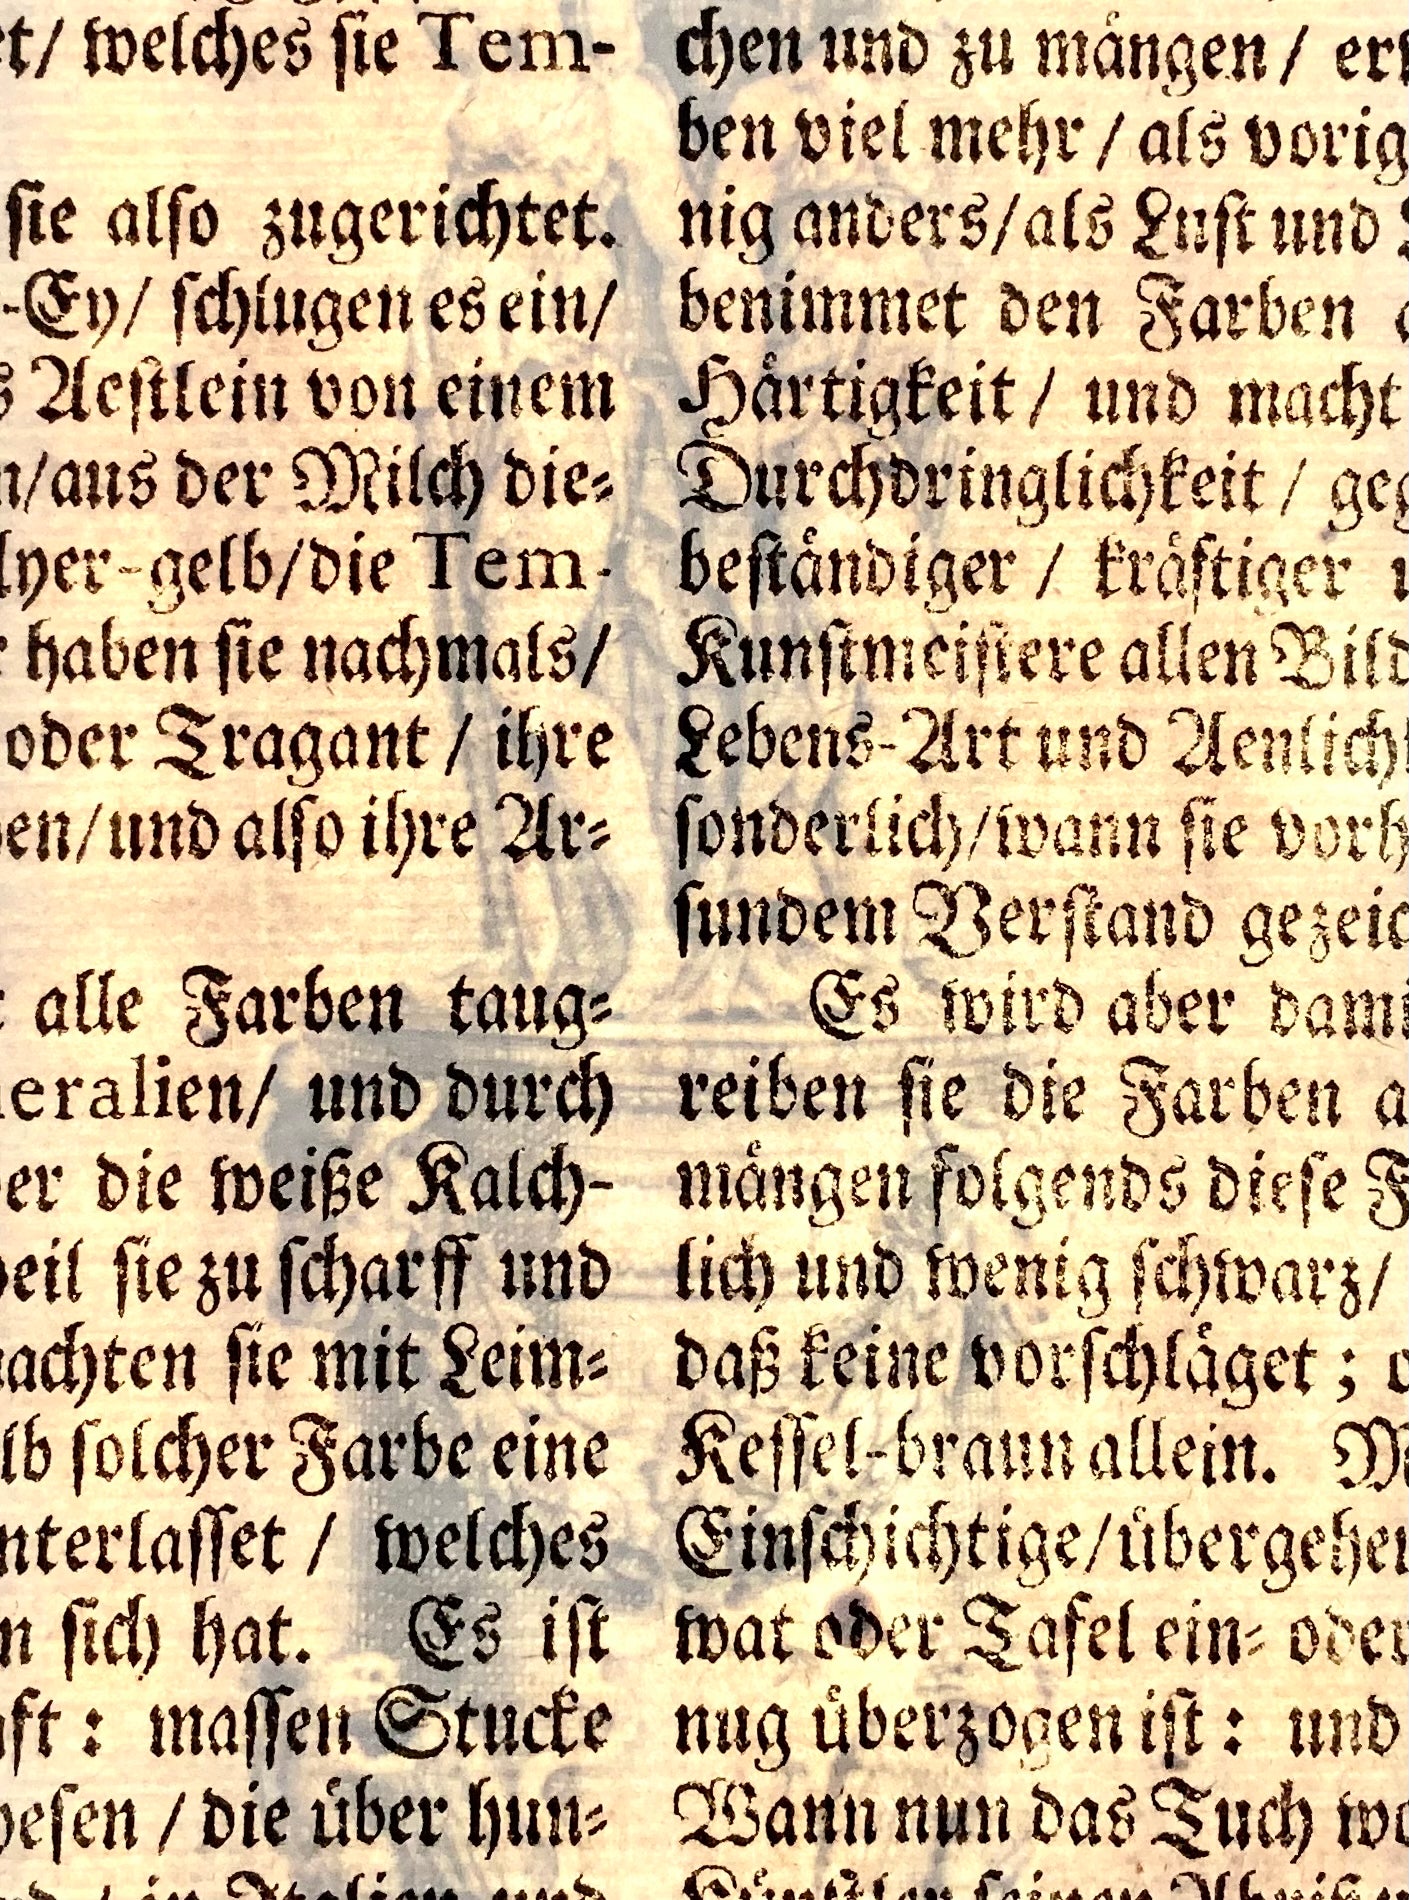 welches sie Tem-
sie also zugerichtet.
-Ey/ schlugen es ein/
Aestlein von einem
/aus der Milch die-
-gelb/die Tem-
haben sie nachmals/
oder Tragant / ihre
/und also ihre Ar-
alle Farben taug-
und durch
die weiße Kalch-
sie zu scharff und
sie mit Leim-
solcher Farbe eine
welches
sich hat. Es ist
: massen Stucke
/ die über hun-
/ in Italien und
chen und zu mängen /
ben viel mehr / als
nig anders/als Lust und
benimmet den Farben
Härtigkeit / und macht
Durchdringlichkeit /
beständiger / kräftiger
Kunstmeistere allen
Lebens-Art und
sonderlich/wann sie
sundem Verstand
Es wird aber
reiben sie die Farben
mängen folgends diese
lich und wenig schwarz/
daß keine vorschläget ;
Kessel-braun allein.
Einschichtige/
wat oder Tafel ein- oder
nug überzogen ist : und
Wann nun das Tuch
Künstler seinen